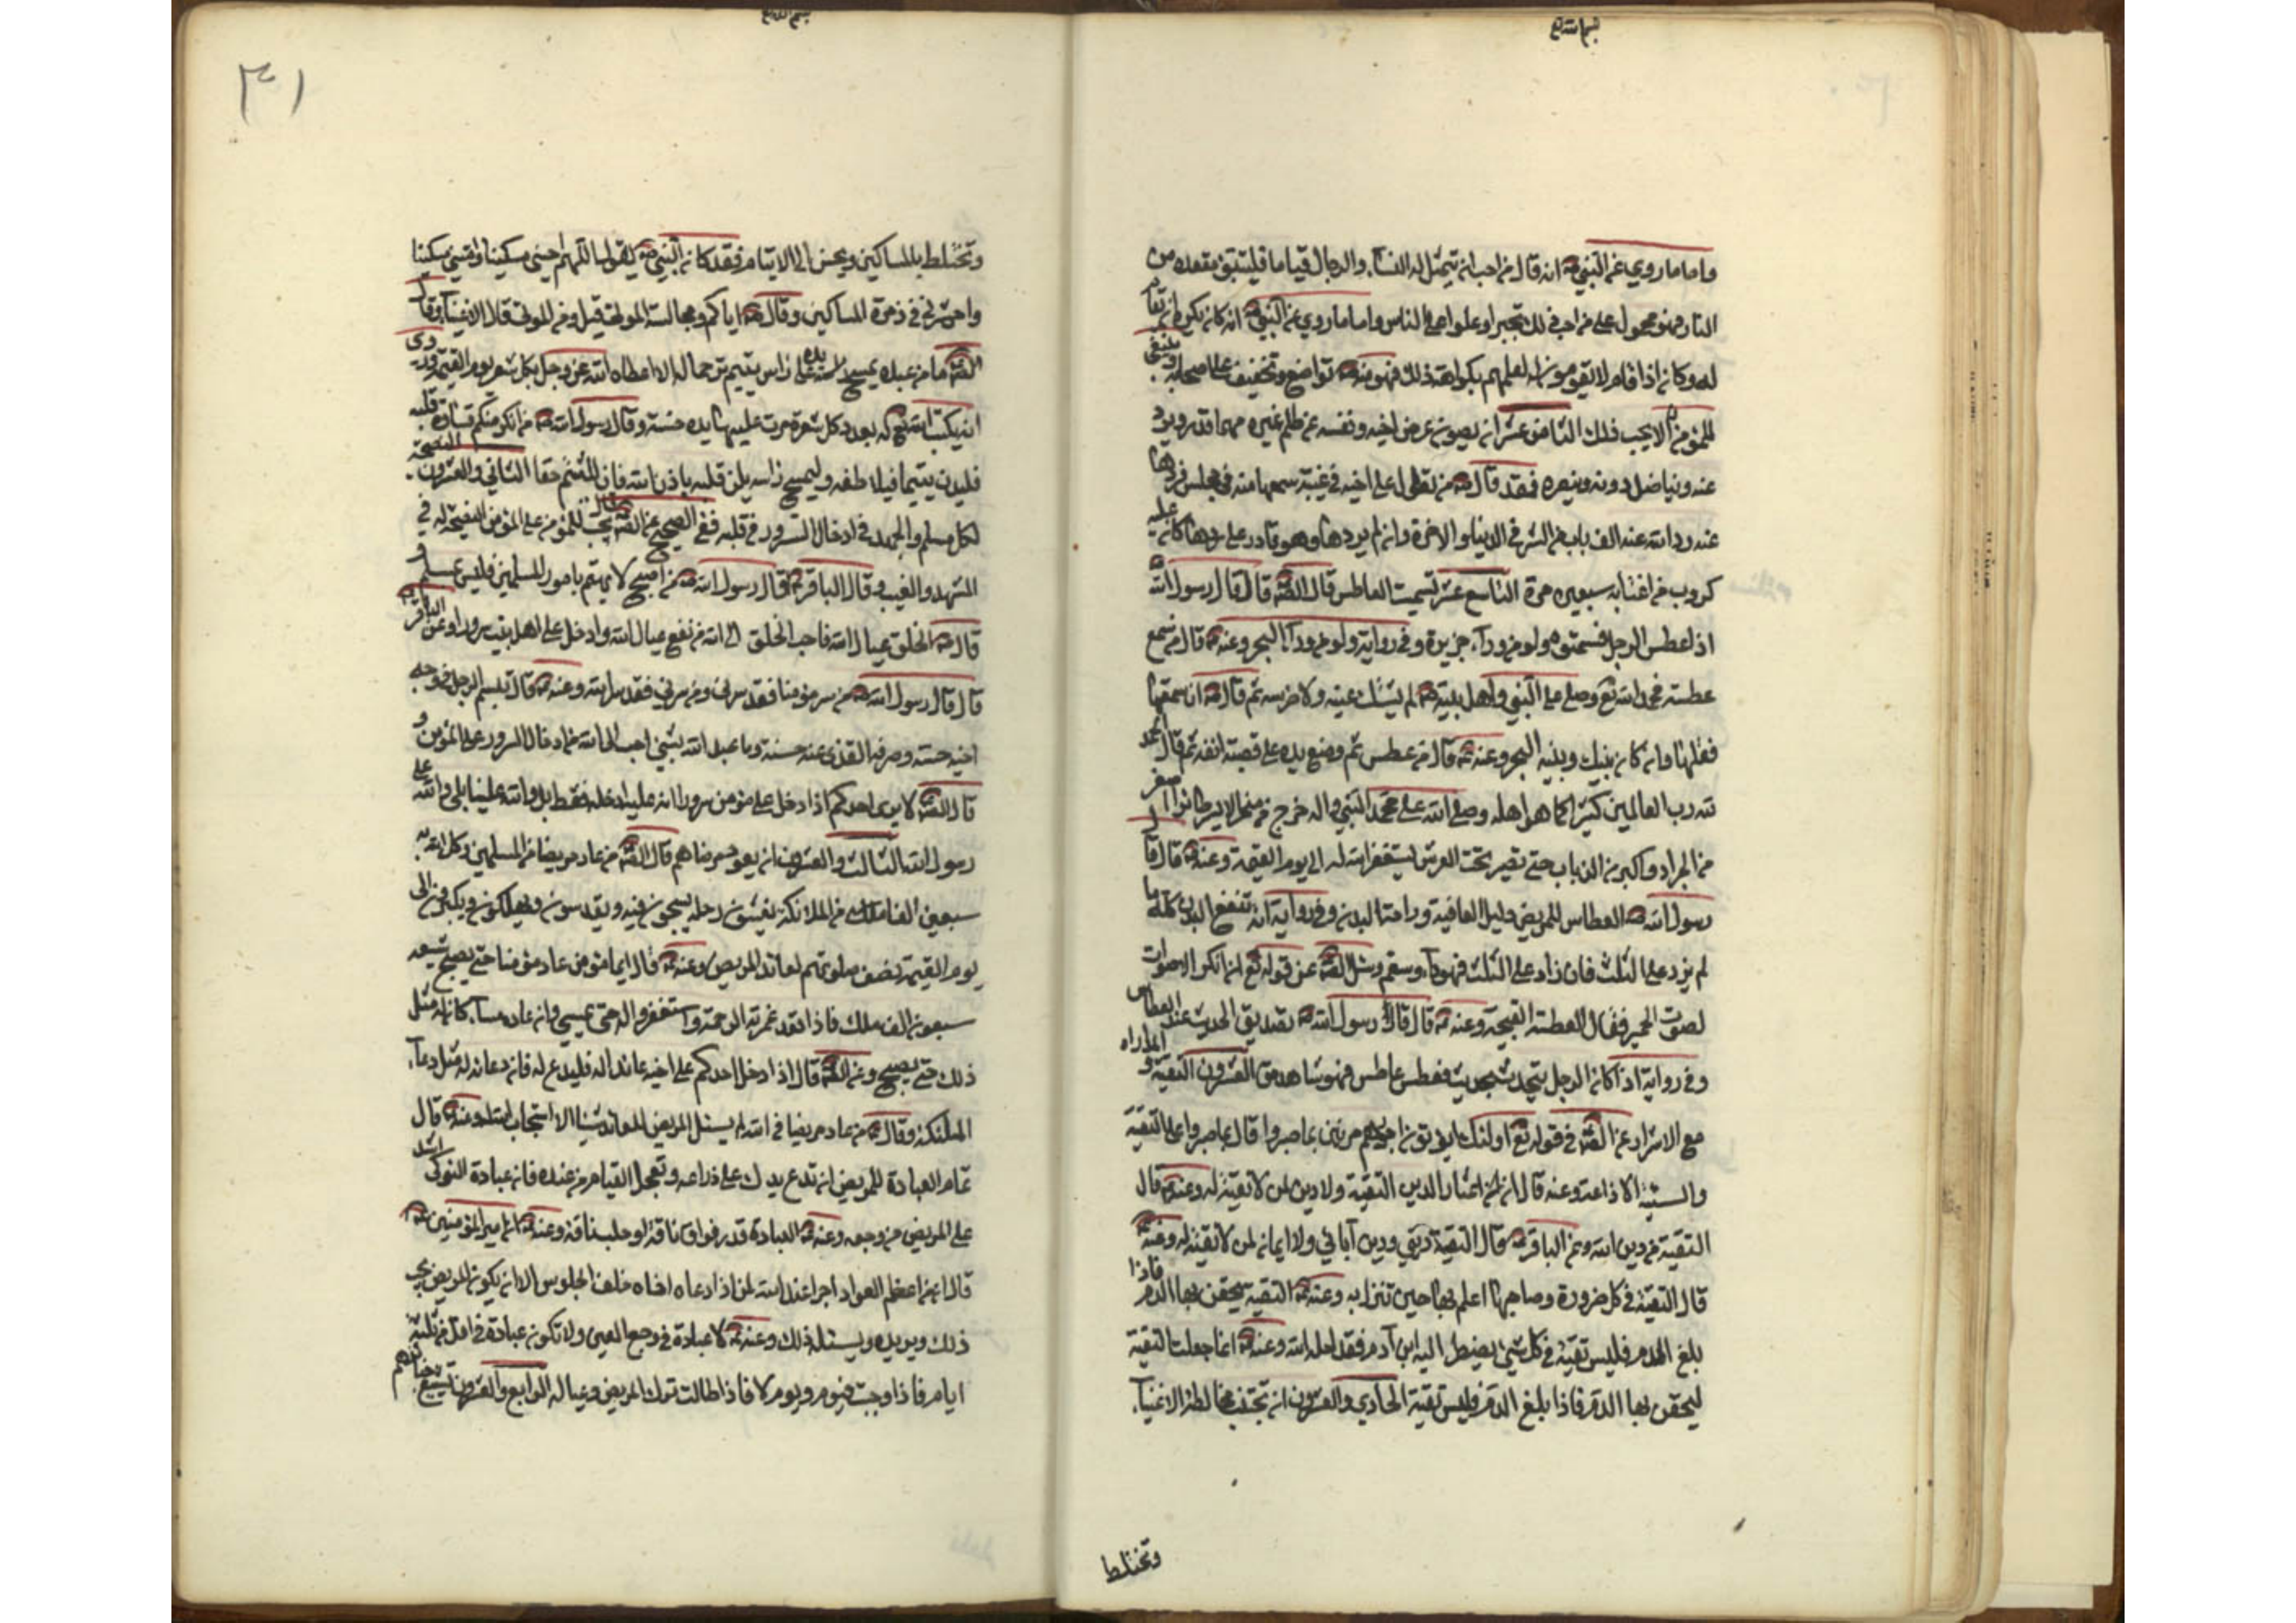 بسم الله تع
واما ما روي عن النبي ص انه قال من احب ان يتمثل له النساء والرجال قياما فليتبوء مقعده من
النار فهو محمول على من احب ذلك تجبرا وعلوا على الناس واما ما روي عن النبي ص انه كان يكره ان يقام
له وكان اذا قام لا يقومون له لعلمهم بكراهته ذلك فهو منه ص تواضع وتخفيف على اصحابه وينبغي
للمؤمن ان لا يحب ذلك الثامن عشر ان يصون عرض اخيه ونفسه عن ظلم غيره مهما قدر ويرد
عنه ويناضل دونه وينصره فقد قال ص من تطول على اخيه في غيبة سمعها منه في مجلس فردها
عنه رد الله عنه الف باب من الشر في الدنيا والاخرة وان لم يردها وهو قادر على ردها كان عليه
كوزر من اغتابه سبعين مرة التاسع عشر تسميت العاطس قال الص قال قال رسول الله ص
اذا عطس الرجل فسمتوه ولو من وراء جزيرة وفي رواية ولو من وراء البحر وعنه ع قال من سمع
عطسة فحمد الله تع وصلى على النبي واهل بيته ص لم يشتك عينه ولا ضرسه ثم قال ع ان سمعتها
فقلها وان كان بينك وبينه البحر وعنه ع قال من عطس ثم وضع يده على قصبة انفه ثم قال الحمد
لله رب العالمين كثيرا كما هو اهله وصلى الله على محمد النبي واله خرج من منخره الايسر طائر اصغر
من الجراد واكبر من الذباب حتى يصير تحت العرش يستغفر الله له الى يوم القيمة وعنه ع قال قال
رسول الله ص العطاس للمريض دليل العافية وراحة البدن وفي رواية انه ينفع البدن كله ما
لم يزد على الثلث فان زاد على الثلث فهو داء وسقم وسئل الص عن قوله تع ان انكر الاصوات
لصوت الحمير فقال العطسة القبيحة وعنه ع قال قال رسول الله ص تصديق الحديث عند العطاس
وفي رواية اذا كان الرجل يتحدث بحديث فعطس عاطس فهو شاهد حق العشرون التقية والمداراه
مع الاشرار عن الص في قوله تع اولئك يؤتون اجرهم مرتين بما صبروا قال بما صبروا على التقية
والسيئة الاذاعة وعنه قال ان تسعة اعشار الدين التقية ولا دين لمن لا تقية له وعنه ع قال
التقية من دين الله وعن الباقر ع قال التقية ديني ودين آبائي ولا ايمان لمن لا تقية له وعنه ع
قال التقية في كل ضرورة وصاحبها اعلم بها حين تنزل به وعنه ع التقية يحقن بها الدم فاذا
بلغ الدم فليس تقية في كل شيء يضطر اليه ابن آدم فقد احله الله وعنه ع انما جعلت التقية
ليحقن بها الدم فاذا بلغ الدم فليس تقية الحادي والعشرون ان تجتنب مخالطة الاغنياء
وتختلط
بسم الله تع
٣١
وتختلط بالمساكين ويحسن الى الايتام فقد كان النبي ص يقول اللهم احيني مسكينا وامتني مسكينا
واحشرني في زمرة المساكين وقال ص اياكم ومجالسة الموتى قيل ومن الموتى قال الاغنياء وقال
الص ما من عبد يمسح يده على راس يتيم ترحما له الا اعطاه الله عز وجل بكل شعرة نورا يوم القيمة وروي
ان يكتب الله تع له بعدد كل شعرة مرت عليها يده حسنة وقال رسول الله ص من انكر منكم قساوة قلبه
فليدن يتيما فيلاطفه وليمسح راسه يلين قلبه باذن الله فان لليتيم حقا الثاني والعشرون النصيحة
لكل مسلم والجهد في ادخال السرور في قلبه ففي الصحيح عن الص ع قال يجب للمؤمن على المؤمن النصيحة له في
المشهد والمغيب وقال الباقر ع قال رسول الله ص من اصبح لا يهتم بامور المسلمين فليس بمسلم و
قال ص الخلق عيال الله فاحب الخلق الى الله من نفع عيال الله وادخل على اهل بيت سرورا وعن الباقر ع
قال قال رسول الله ص من سر مؤمنا فقد سرني ومن سرني فقد سر الله وعنه ع قال تبسم الرجل في وجه
اخيه حسنة وصرف القذى عنه حسنة وما عبد الله بشيء احب الى الله من ادخال السرور على المؤمن و
قال الص لا يرى احدكم اذا ادخل على مؤمن سرورا انه عليه ادخله فقط بل والله علينا بلى والله على
رسول الله الثالث والعشرون ان يعود مرضاهم قال الص من عاد مريضا من المسلمين وكل الله به
سبعين الفا من الملائكة يغشون رحله يسبحون فيه ويقدسون ويهللون ويكبرون الى
يوم القيمة نصف صلوتهم لعائد المريض وعنه ع قال ايما مؤمن عاد مؤمنا حين يصبح شيعه
سبعون الف ملك فاذا قعد غمرته الرحمة واستغفروا له حتى يمسي وان عاد مساء كان له مثل
ذلك حتى يصبح وعن الص قال اذا دخل احدكم على اخيه عائدا له فليدع له فان دعائه له مثل دعاء
الملئكة وقال ع من عاد مريضا في الله لم يسئل المريض للعائد شيئا الا استجاب الله له وعنه ع قال
تمام العيادة للمريض ان تدع يدك على ذراعه وتعجل القيام من عنده فان عيادة النوكى اشد
على المريض من وجعه وعنه ع العيادة قدر فواق ناقة او حلب ناقة وعنه ع عن امير المؤمنين ع
قال ان من اعظم العواد اجرا عند الله لمن اذا عاد اخاه خفف الجلوس الا ان يكون المريض يحب
ذلك ويريده ويسئله ذلك وعنه ع لا عيادة في وجع العين ولا تكون عيادة في اقل من ثلثة
ايام فاذا وجبت فيوم ويوم لا فاذا طالت ترك المريض وعياله الرابع والعشرون تشييع جنائزهم